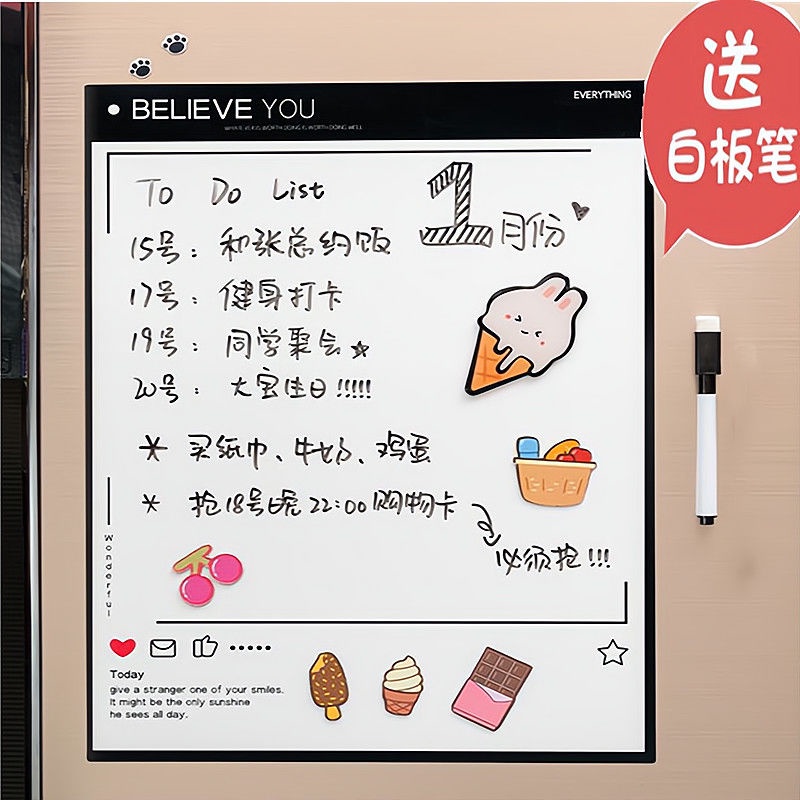 送
白板笔
BELIEVE YOU
EVERYTHING
To Do List
1月份
15号：和张总约饭
17号：健身打卡
19号：同学聚会☆
20号：大宝生日!!!!!
* 买纸巾、牛奶、鸡蛋
* 抢18号晚22:00购物卡
必须抢!!!
Wonderful
Today
give a stranger one of your smiles.
It might be the only sunshine
he sees all day.